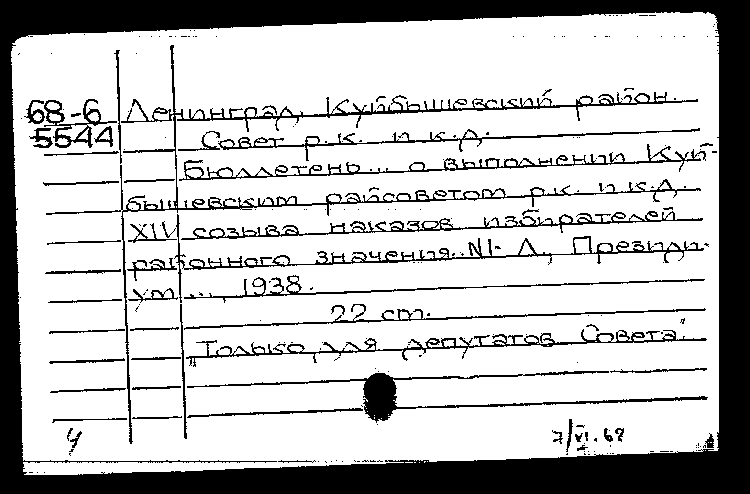 68-6 Ленинград, Куйбышевский район.
5544 Совет р.к. и к.д.
Бюллетень... о выполнении Куй-
бышевским райсоветом р.к. и к.д.
XIV созыва наказов избирателей
районного значения. N1- Л., Президи-
ум ..., 1938.
22 cm.
„Только для депутатов Совета".
4
7/VI.68